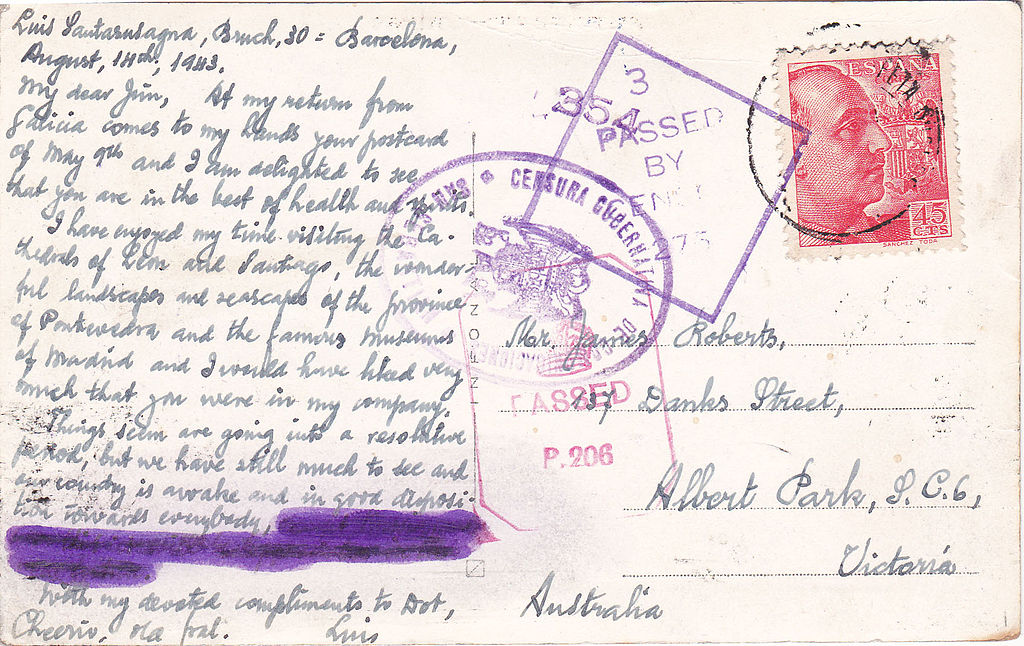 Luis Santasusagna, Bruch, 30 = Barcelona,
August, 14th, 1943.
My dear Jim, At my return from
Galicia comes to my hands your postcard
of May 9th and I am delighted to see
that you are in the best of health and spirits
I have enjoyed my time visiting the Ca-
thedrals of Leon and Santiago, the wonder-
ful landscapes and seascapes of the province
of Pontevedra and the famous Museums
of Madrid and I would have liked very
much that you were in my company.
Things seem are going into a resolutive
period, but we have still much to see and
our country is awake and in good disposi-
tion towards everybody,
With my devoted compliments to Dot,
Cheerio, old pal. Luis
3
354
PASSED
BY
CENSURA GUBERNATIVA DE
PASSED
P.206
ESPAÑA
45
CTS
SANCHEZ TODA
Mr. James Roberts,
137 Danks Street,
Albert Park, S.C.6,
Victoria
Australia